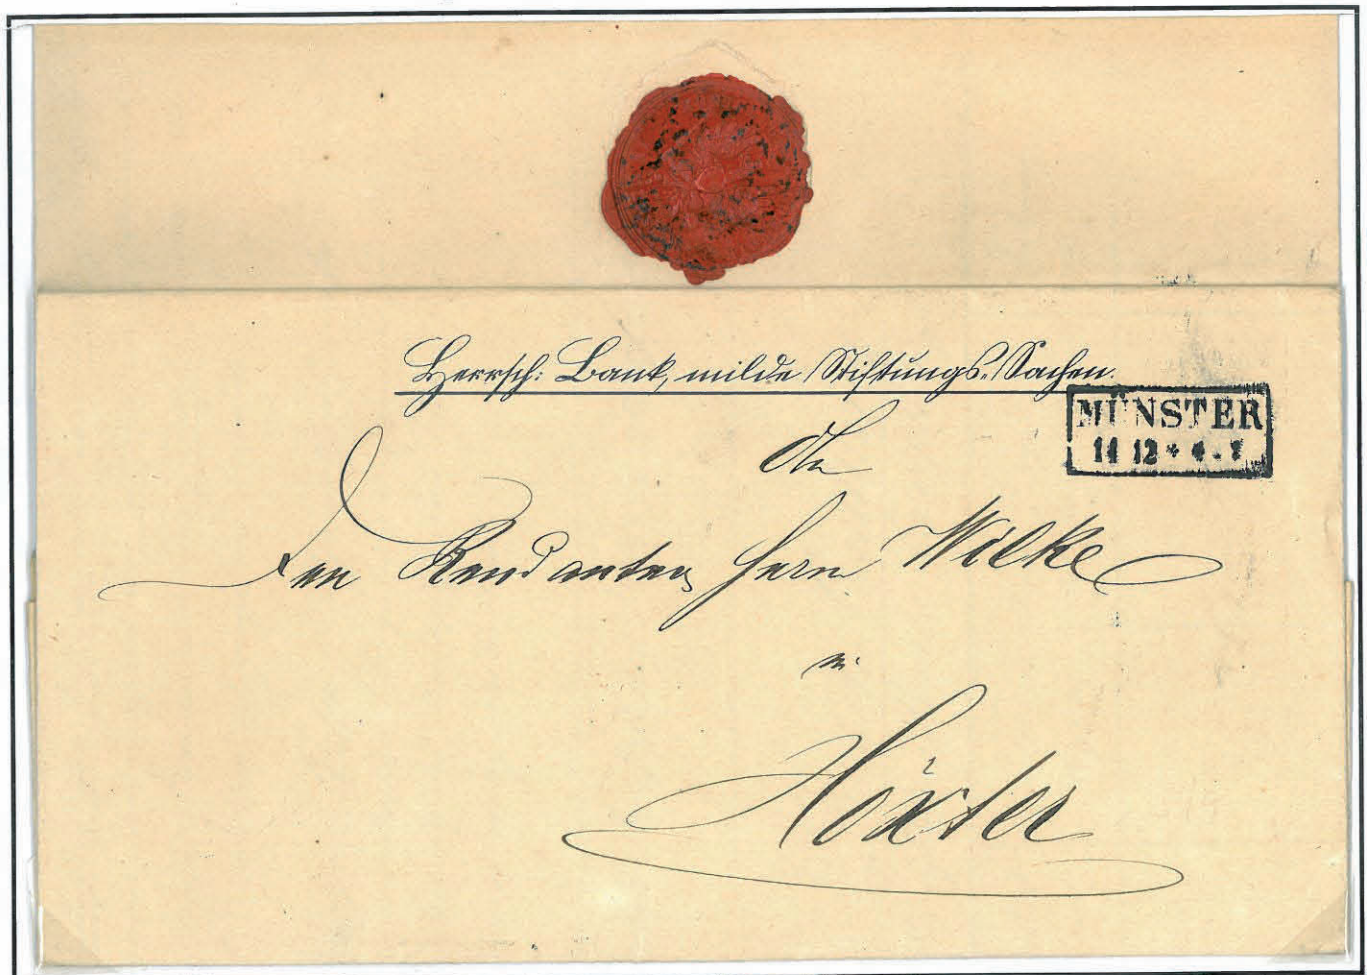 Herrsch: Bank, milde Stiftungs-Sachen.
MÜNSTER
11 12
An
den Rendanten Herrn Wilke
in
Höxter